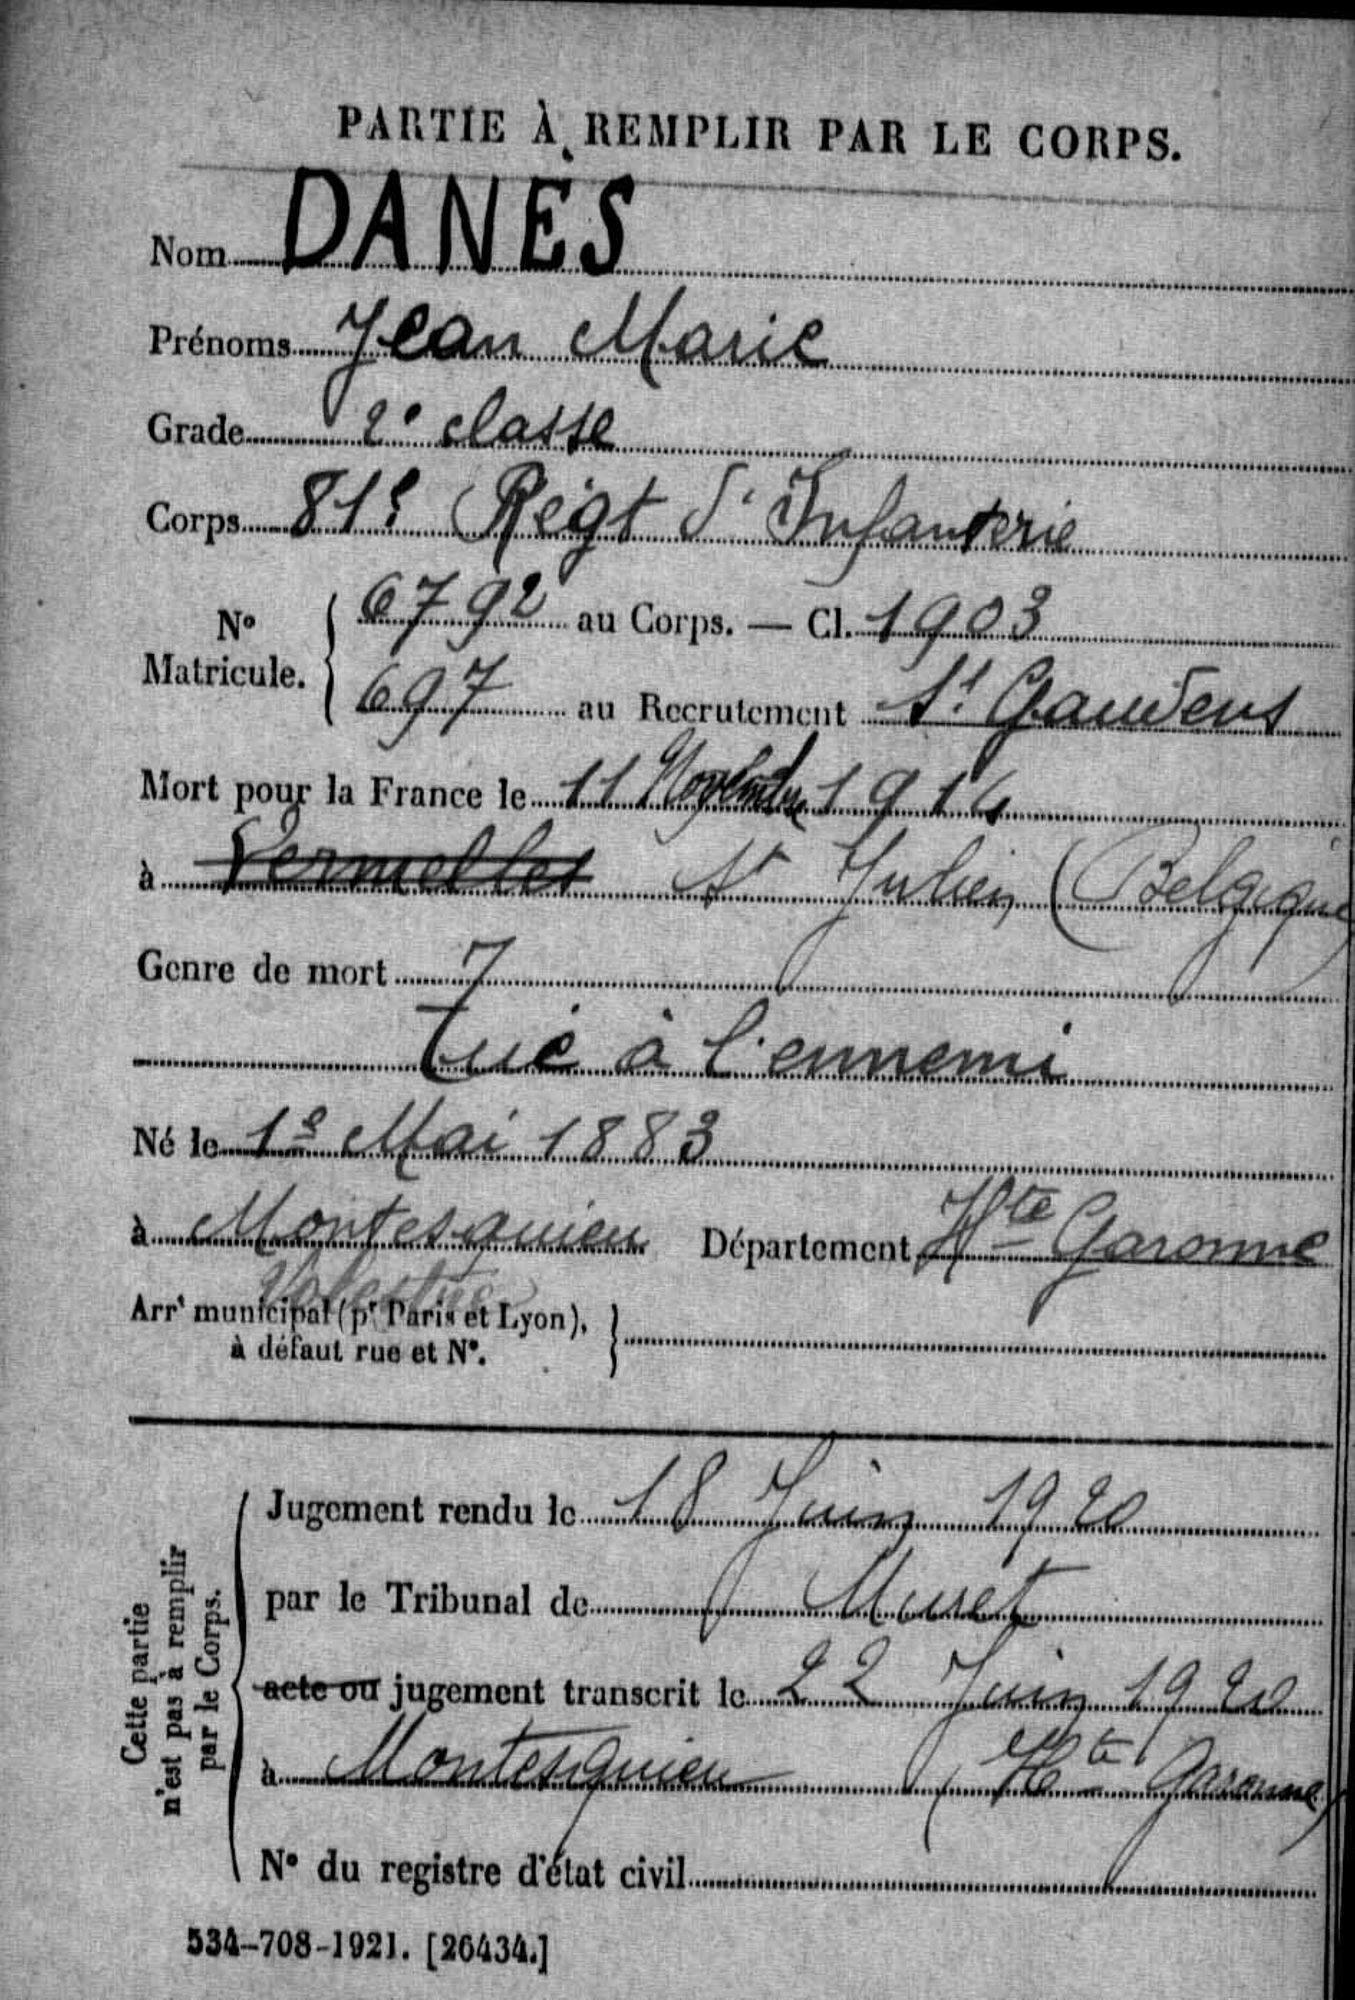 PARTIE À REMPLIR PAR LE CORPS.
Nom DANÈS
Prénoms Jean Marie
Grade 2e classe
Corps 81e Régt d'Infanterie
N° Matricule. { 6792 au Corps. — Cl. 1903
697 au Recrutement St Gaudens
Mort pour la France le 11 Novembre 1914
à Vermelles St Julien (Belgique)
Genre de mort
Tué à l'ennemi
Né le 1e Mai 1883
à Montesquieu Département Hte Garonne
Volvestre
Arrt municipal (pr Paris et Lyon),
à défaut rue et N°.
Cette partie
n'est pas à remplir
par le Corps.
Jugement rendu le 18 Juin 1920
par le Tribunal de Muret
acte ou jugement transcrit le 22 Juin 1920
à Montesquieu (Hte Garonne)
N° du registre d'état civil
534-708-1921. [26434.]